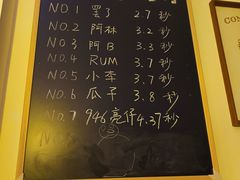 NO.1 罢了 2.7秒
NO.2 阿林 3.2秒
NO.3 阿B 3.3秒
NO.4 RUM 3.7秒
NO.5 小李 3.7秒
NO.6 瓜子 3.8秒
NO.7 946亮仔 4.37秒
CON